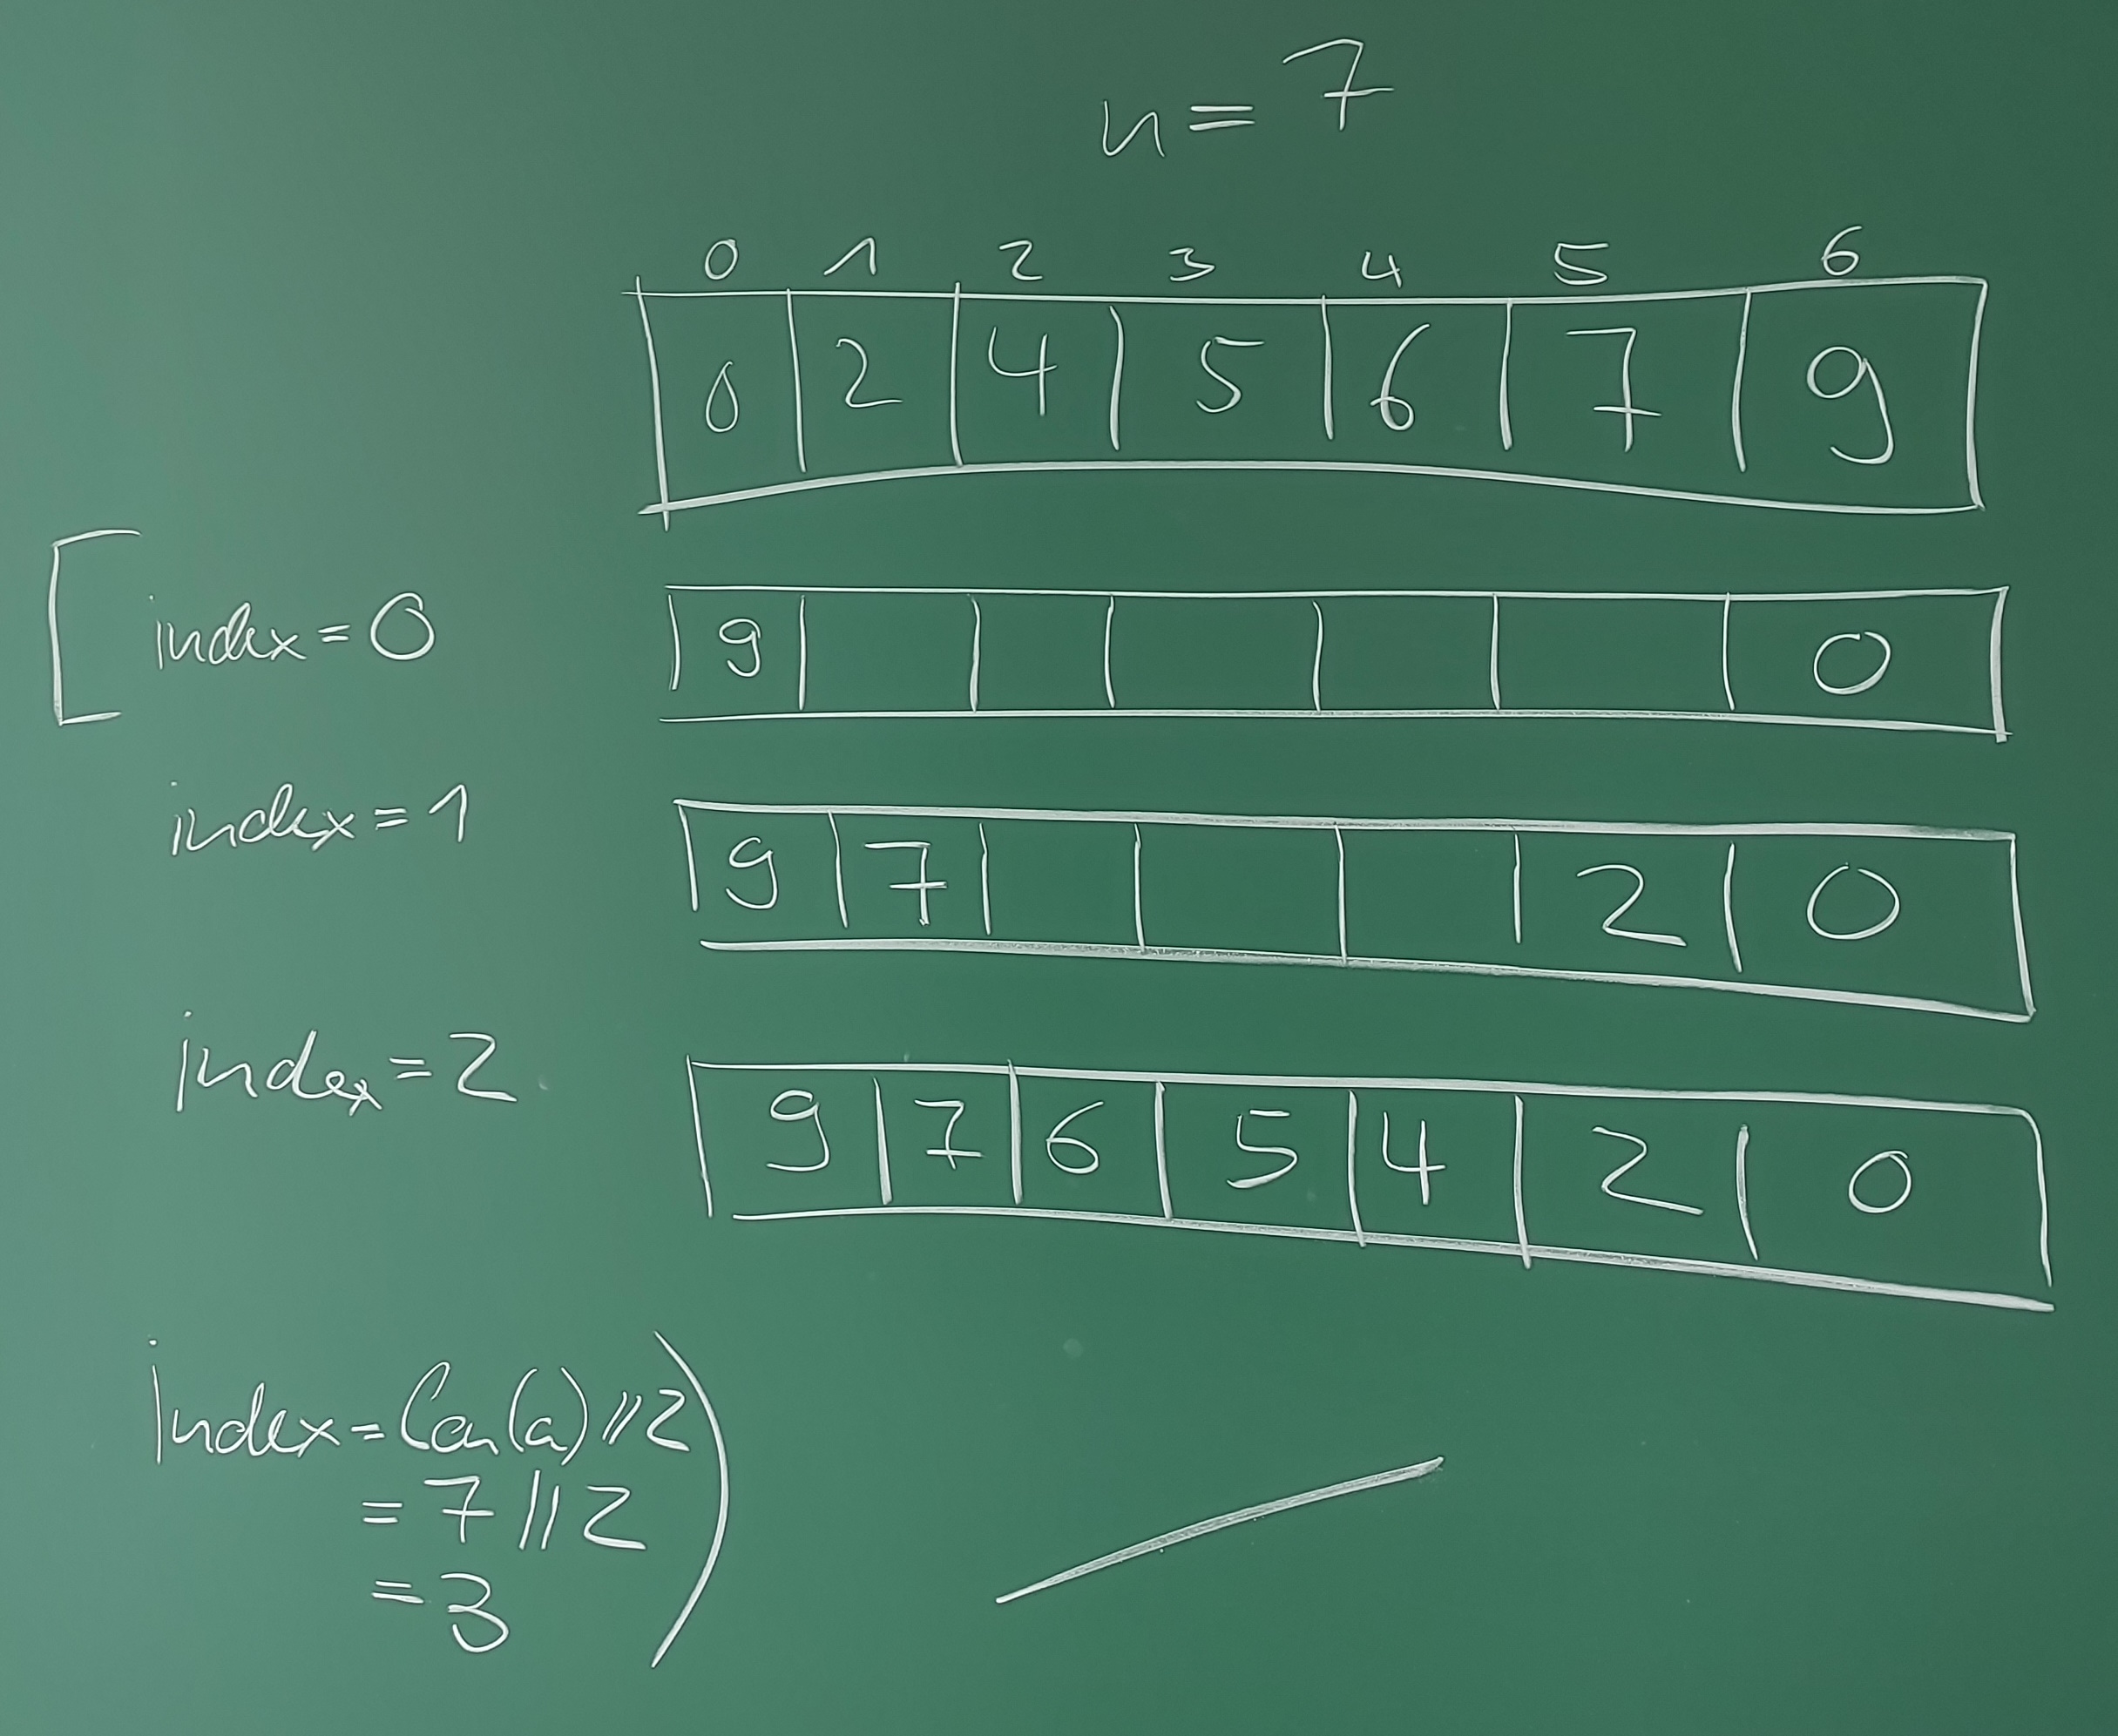 n = 7
0 1 2 3 4 5 6
0 2 4 5 6 7 9
index = 0
9 0
index = 1
9 7 2 0
index = 2
9 7 6 5 4 2 0
index = len(a)//2
= 7//2
= 3